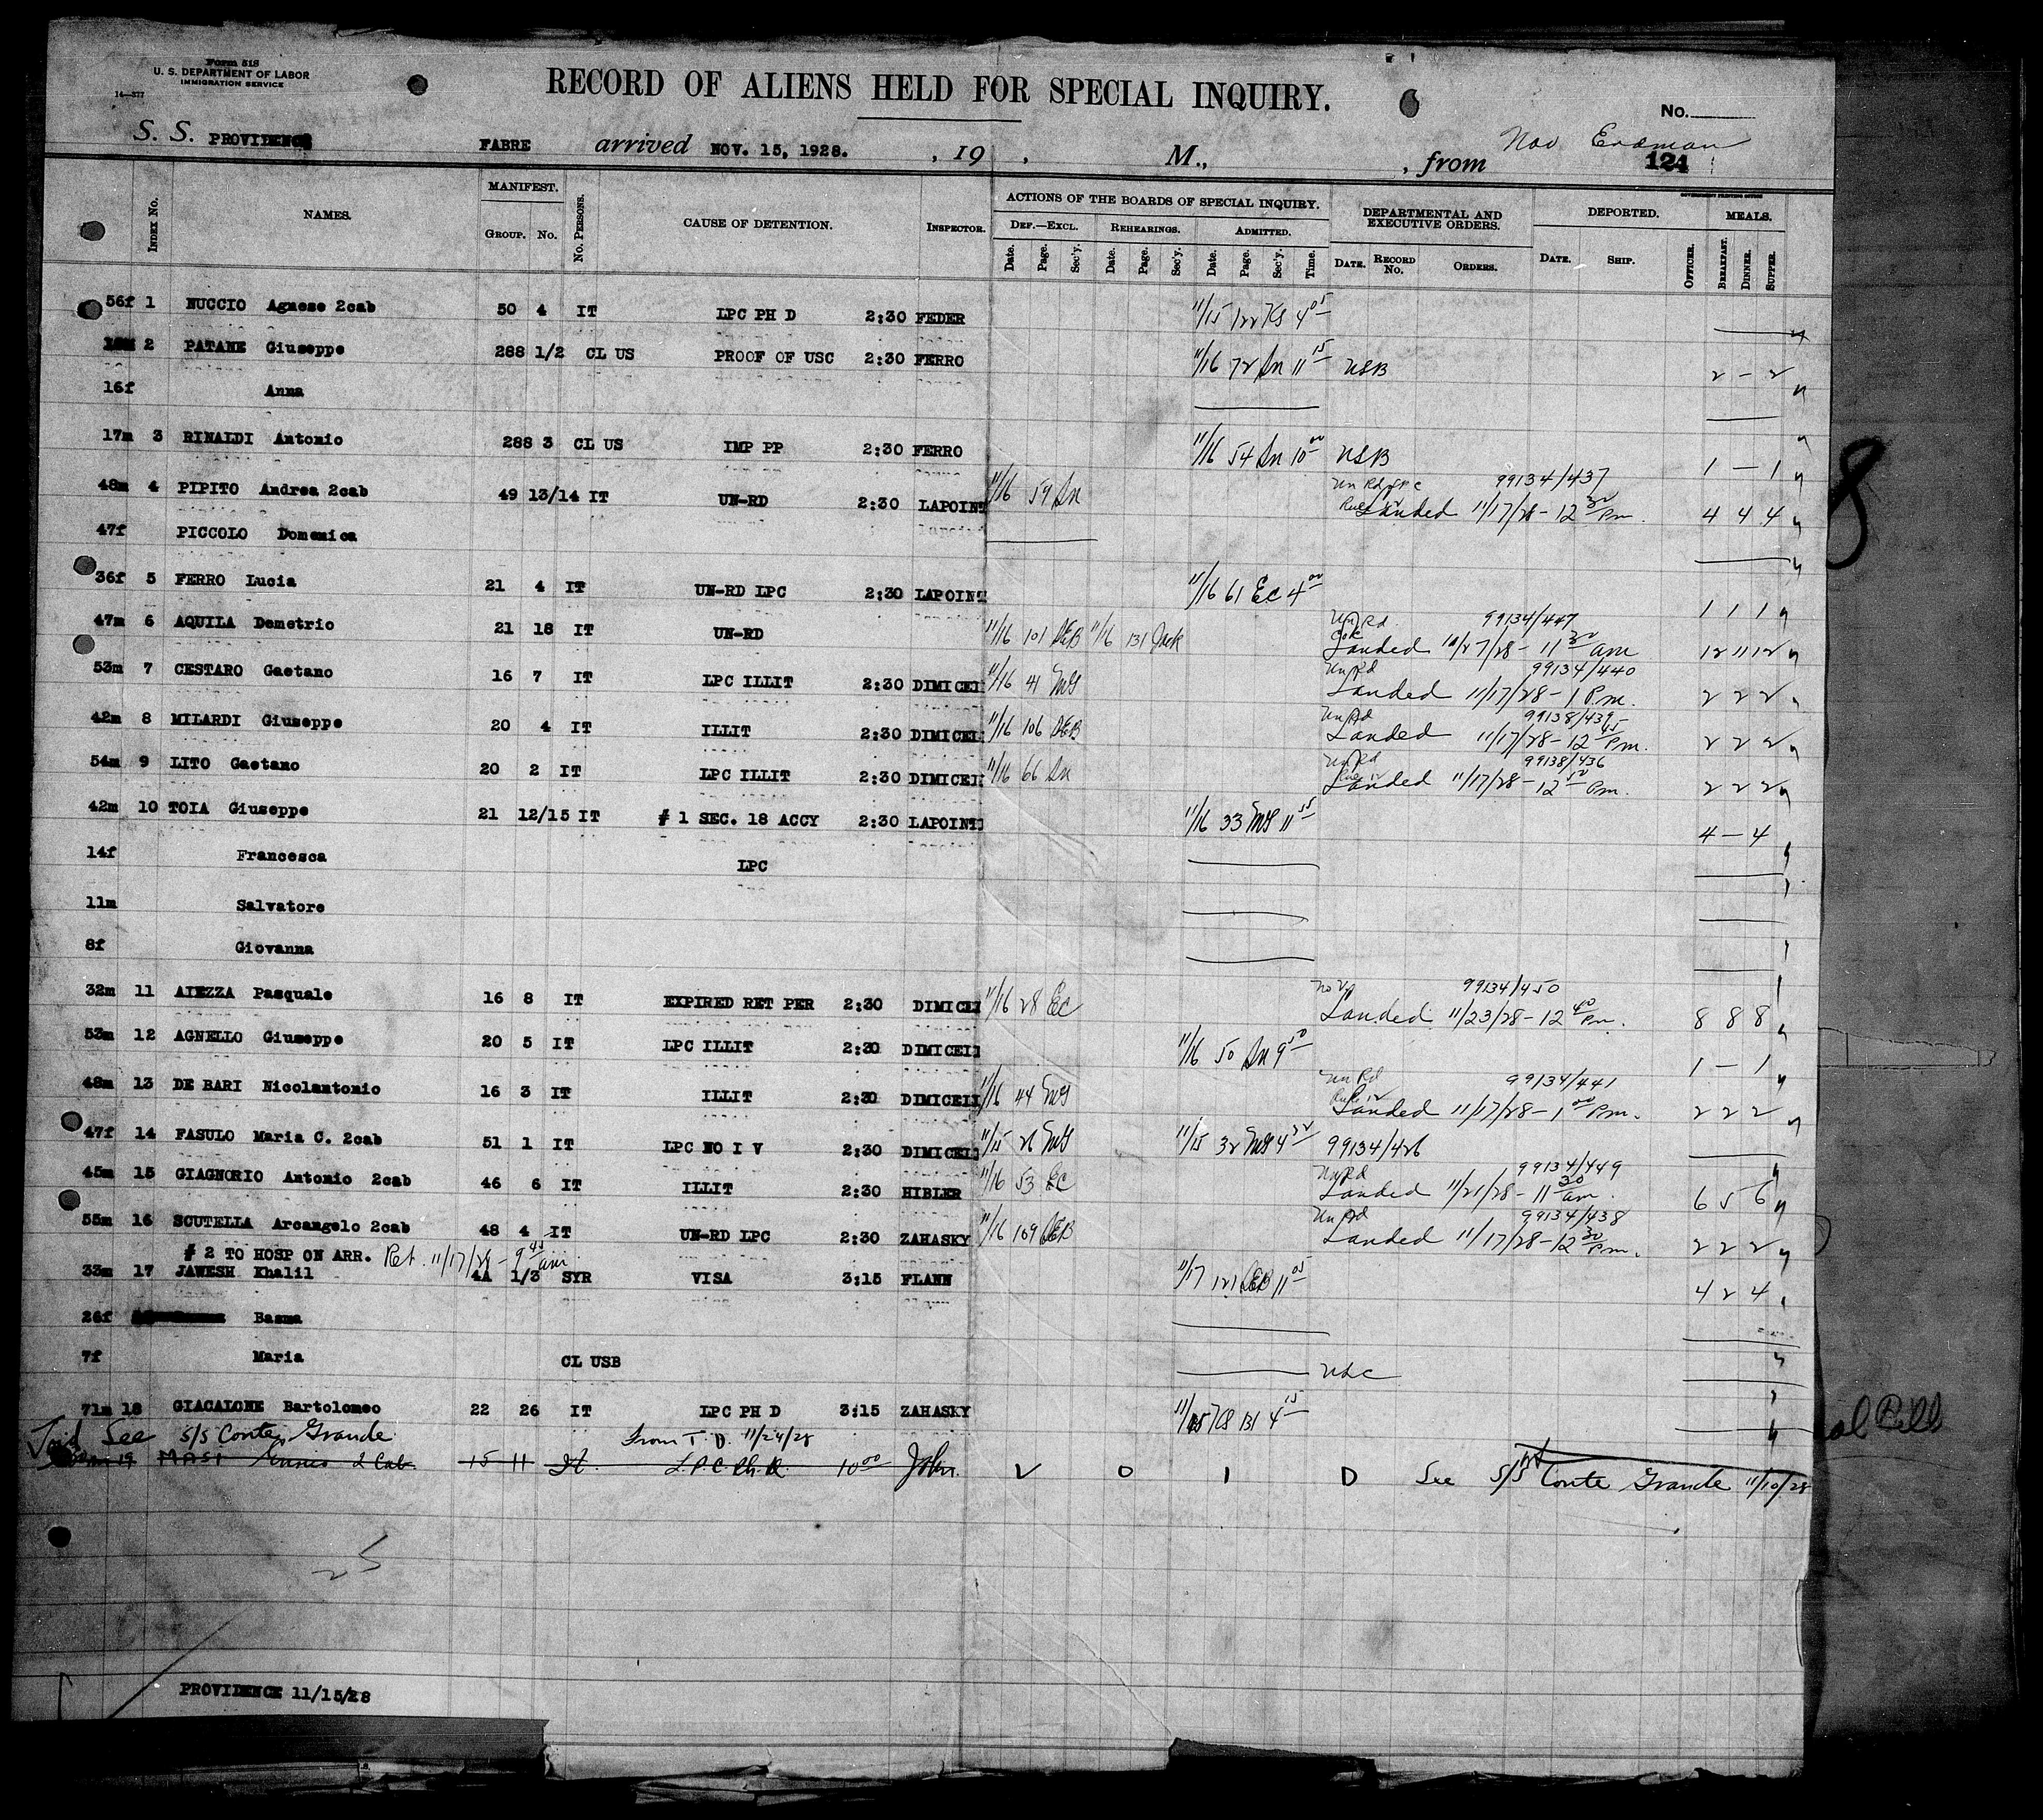 Form 518
U. S. DEPARTMENT OF LABOR
IMMIGRATION SERVICE
14—377
RECORD OF ALIENS HELD FOR SPECIAL INQUIRY.
No.
S. S. PROVIDENCE FABRE arrived NOV. 15, 1928. , 19 , M., , from
124
GOVERNMENT PRINTING OFFICE
Index No. NAMES. MANIFEST. Group. No. No. Persons. CAUSE OF DETENTION. Inspector. ACTIONS OF THE BOARDS OF SPECIAL INQUIRY. Def.—Excl. Rehearings. Admitted. DEPARTMENTAL AND EXECUTIVE ORDERS. DEPORTED. MEALS.
Date. Page. Sec'y. Date. Page. Sec'y. Date. Page. Sec'y. Time. Date. Record No. Orders. Date. Ship. Officer. Breakfast. Dinner. Supper.
56f 1 NUCCIO Agnese 2cab 50 4 IT LPC PH D 2:30 FEDER 11/15 122 4 05
2 PATANE Giuseppe 288 1/2 CL US PROOF OF USC 2:30 FERRO 11/16 72 Sn 11 15 USB 2 — 2
16f Anna
17m 3 RINALDI Antonio 288 3 CL US IMP PP 2:30 FERRO 11/16 54 Sn 10 00 USB 1 — 1
48m 4 PIPITO Andrea 2cab 49 13/14 IT UN-RD 2:30 LAPOINT 11/16 59 Sn 99134/437
Landed 11/17/28 – 12 30 Pm. 4 4 4
47f PICCOLO Domenica
36f 5 FERRO Lucia 21 4 IT UN-RD LPC 2:30 LAPOINT 11/16 61 EC 4 00 1 1 1
47m 6 AQUILA Demetrio 21 18 IT UN-RD 11/16 101 DEB 11/16 131 Jack Un Rd 99134/447
Landed 11/27/28 – 11 30 am 12 11 12
53m 7 CESTARO Gaetano 16 7 IT LPC ILLIT 2:30 DIMICEI 11/16 41 MS Un Rd 99134/440
Landed 11/17/28 – 1 P.m. 2 2 2
42m 8 MILARDI Giuseppe 20 4 IT ILLIT 2:30 DIMICEI 11/16 106 DEB Un Rd 99138/439
Landed 11/17/28 – 12 45 Pm. 2 2 2
54m 9 LITO Gaetano 20 2 IT LPC ILLIT 2:30 DIMICEI 11/16 66 Sn Un Rd 99138/436
Landed 11/17/28 – 12 50 Pm. 2 2 2
42m 10 TOIA Giuseppe 21 12/15 IT # 1 SEC. 18 ACCY 2:30 LAPOINT 11/16 33 MS 11 55 4 — 4
14f Francesca LPC
11m Salvatore
8f Giovanna
32m 11 AIEZZA Pasquale 16 8 IT EXPIRED RET PER 2:30 DIMICEI 11/16 28 EC 99134/450
Landed 11/23/28 – 12 40 Pm. 8 8 8
53m 12 AGNELLO Giuseppe 20 5 IT LPC ILLIT 2:30 DIMICEI 11/16 50 Sn 9 50 1 — 1
48m 13 DE BARI Nicolantonio 16 3 IT ILLIT 2:30 DIMICEII 11/16 44 MS Un Rd 99134/441
Landed 11/17/28 – 1 00 Pm. 2 2 2
47f 14 FASULO Maria C. 2cab 51 1 IT LPC NO I V 2:30 DIMICEI 11/15 26 MS 11/15 32 MS 4 32 99134/426
45m 15 GIAGNORIO Antonio 2cab 46 6 IT ILLIT 2:30 HIBLER 11/16 53 EC Un Rd 99134/449
Landed 11/21/28 – 11 30 am. 6 5 6
55m 16 SCUTELLA Arcangelo 2cab 48 4 IT UN-RD LPC 2:30 ZAHASKY 11/16 109 DEB Un Rd 99134/438
Landed 11/17/28 – 12 30 Pm. 2 2 2
# 2 TO HOSP ON ARR. Ret. 11/17/28 – 9 45 am
33m 17 JAWESH Khalil 4A 1/3 SYR VISA 3:15 FLANN 11/17 121 DEB 11 05 4 2 4
26f Basma
7f Maria CL USB USC
71m 18 GIACALONE Bartolomeo 22 26 IT LPC PH D 3:15 ZAHASKY 11/15 131 4 15
See S/S Conte Grande from T. D. 11/24/28
19 MASI Ennio 2 Cab 15 11 It. L.P.C. Ph. D. 10 00 John. V O I D See S/S Conte Grande 11/10/28
25
PROVIDENCE 11/15/28
8